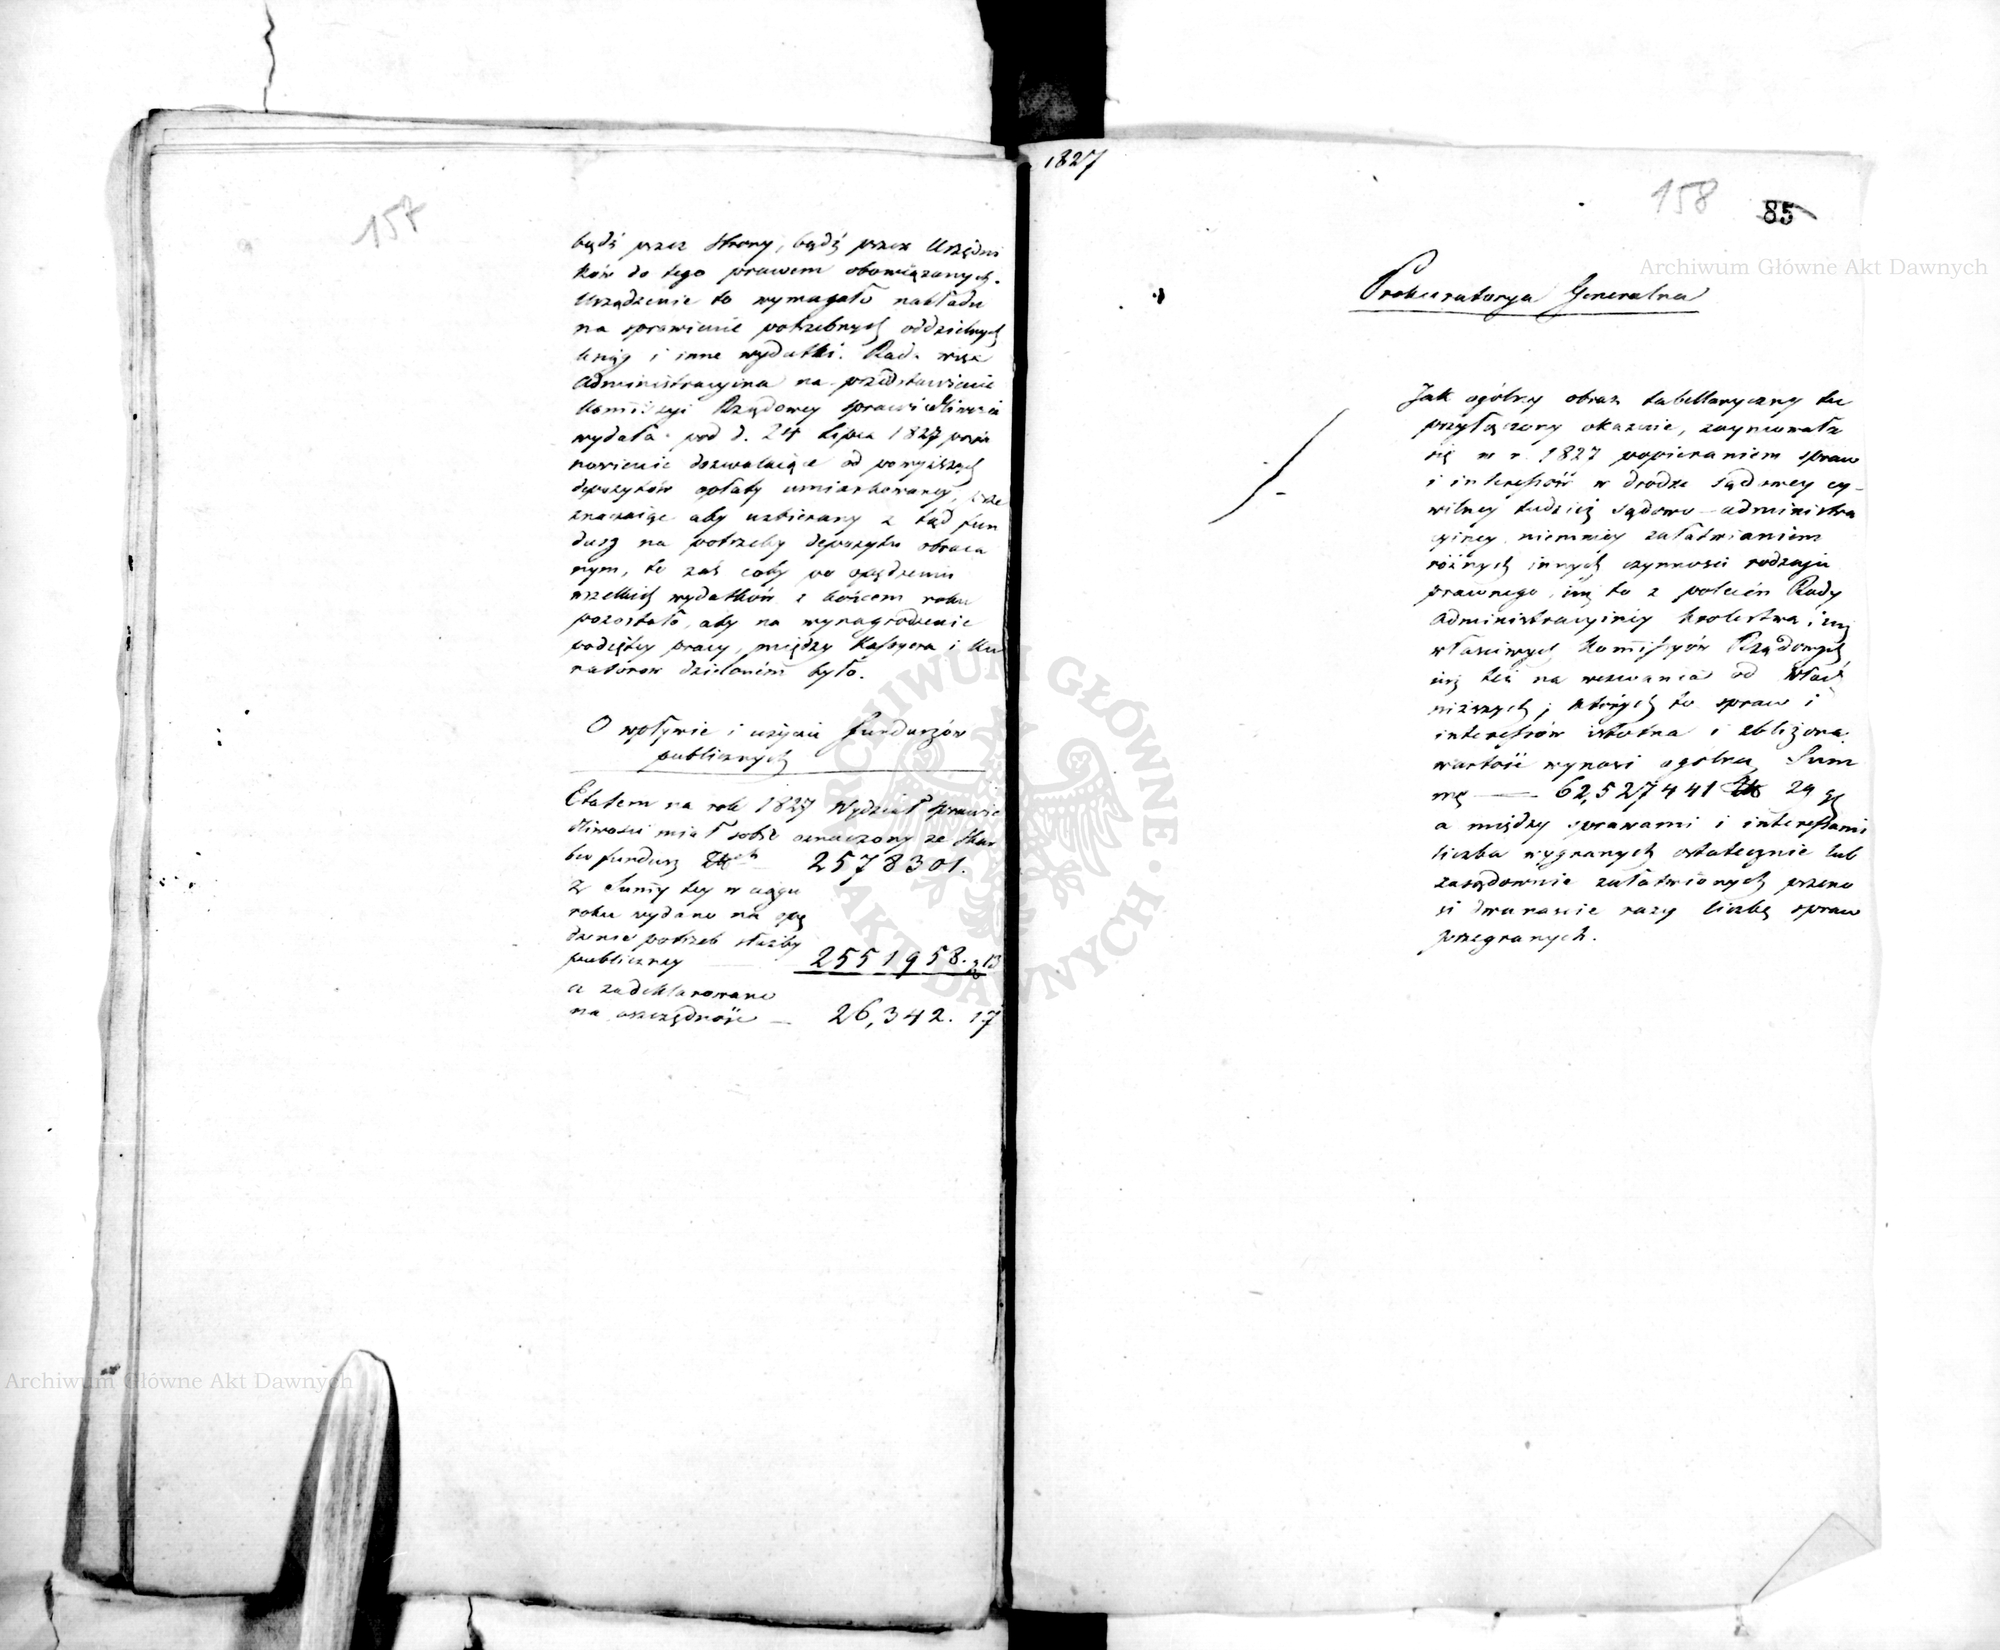 157
bądź przez strony, bądź przez Urzędni
ków do tego prawem obowiązanych.
Urządzenie to wymagało nakładu
na sprawienie potrzebnych oddzielnych
ksiąg i inne wydatki. Rada więc
Administracyina na przedstawienie
Kommissyi Rządowey Sprawiedliwości
wydała pod d. 24 Lipca 1827 posta
nowienie dozwalaiące od powyższych
depozytów opłaty umiarkowaney, prze
znaczaiąc aby uzbierany z tąd fun
dusz na potrzeby depozytu obraca
nym, to zaś coby po opędzeniu
wszelkich wydatków z końcem roku
pozostało, aby na wynagrodzenie
podiętey pracy, między Kassyera i Ku
ratorow dzielonem było.
O wpływie i użyciu funduszów
publicznych
Etatem na rok 1827 Wydział Sprawie
dliwości miał sobie oznaczony ze Skar
bu fundusz 2578301.
Z Summy tey w ciągu
roku wydano na opę
dzenie potrzeb służby
publiczney — 2551958. g 13
a zadeklarowano
na oszczędność — 26,342. 17
1827
158
85
Prokuratorya Generalna
Jak ogólny obraz tabellaryczny tu
przyłączony okazuie, zaymowała
się w r. 1827 popieraniem spraw
i interessów w drodze sądowey cy-
wilney tudzież sądowo-administra
cyiney niemniey załatwianiem
różnych innych czynności rodzaju
prawnego, iuż to z poleceń Rady
Administracyiney Królestwa, iuż
właściwych Kommissyów Rządowych
iuż też na wezwania od Władz
niższych; których to spraw i
interessów istotna i zbliżona
wartość wynosi ogólną Sum
mę — 62,527441 Zł 24 gr
a między sprawami i interessami
liczba wygranych ostatecznie lub
zasądownie załatwionych przeno
si dwanaście razy liczbę spraw
przegranych.
Archiwum Główne Akt Dawnych
ARCHIWUM GŁÓWNE AKT DAWNYCH
Archiwum Główne Akt Dawnych